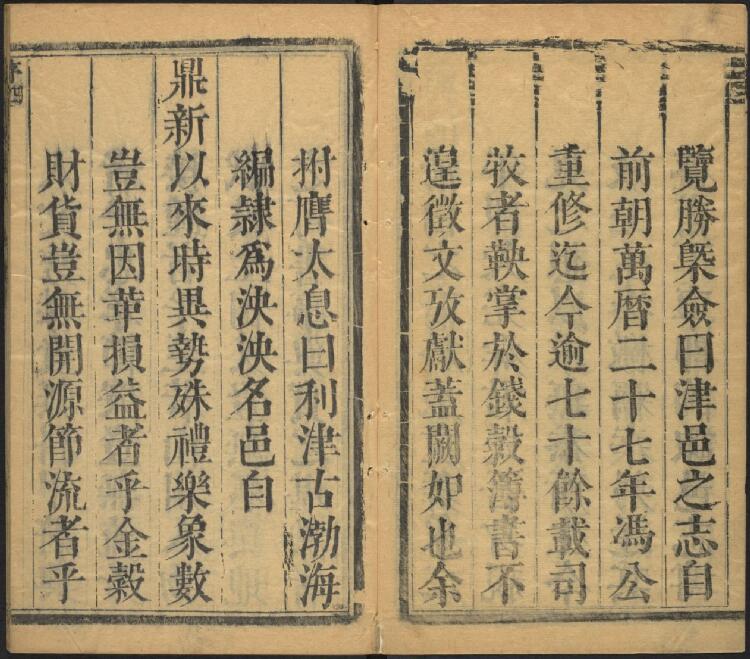 覽勝槩僉曰津邑之志自
前朝萬曆二十七年馮公
重修迄今逾七十餘載司
牧者鞅掌於錢穀簿書不
遑徵文攷獻蓋闕如也余
拊膺太息曰利津古渤海
編隷爲泱泱名邑自
鼎新以來時異勢殊禮樂象數
豈無因革損益者乎金穀
財貨豈無開源節流者乎